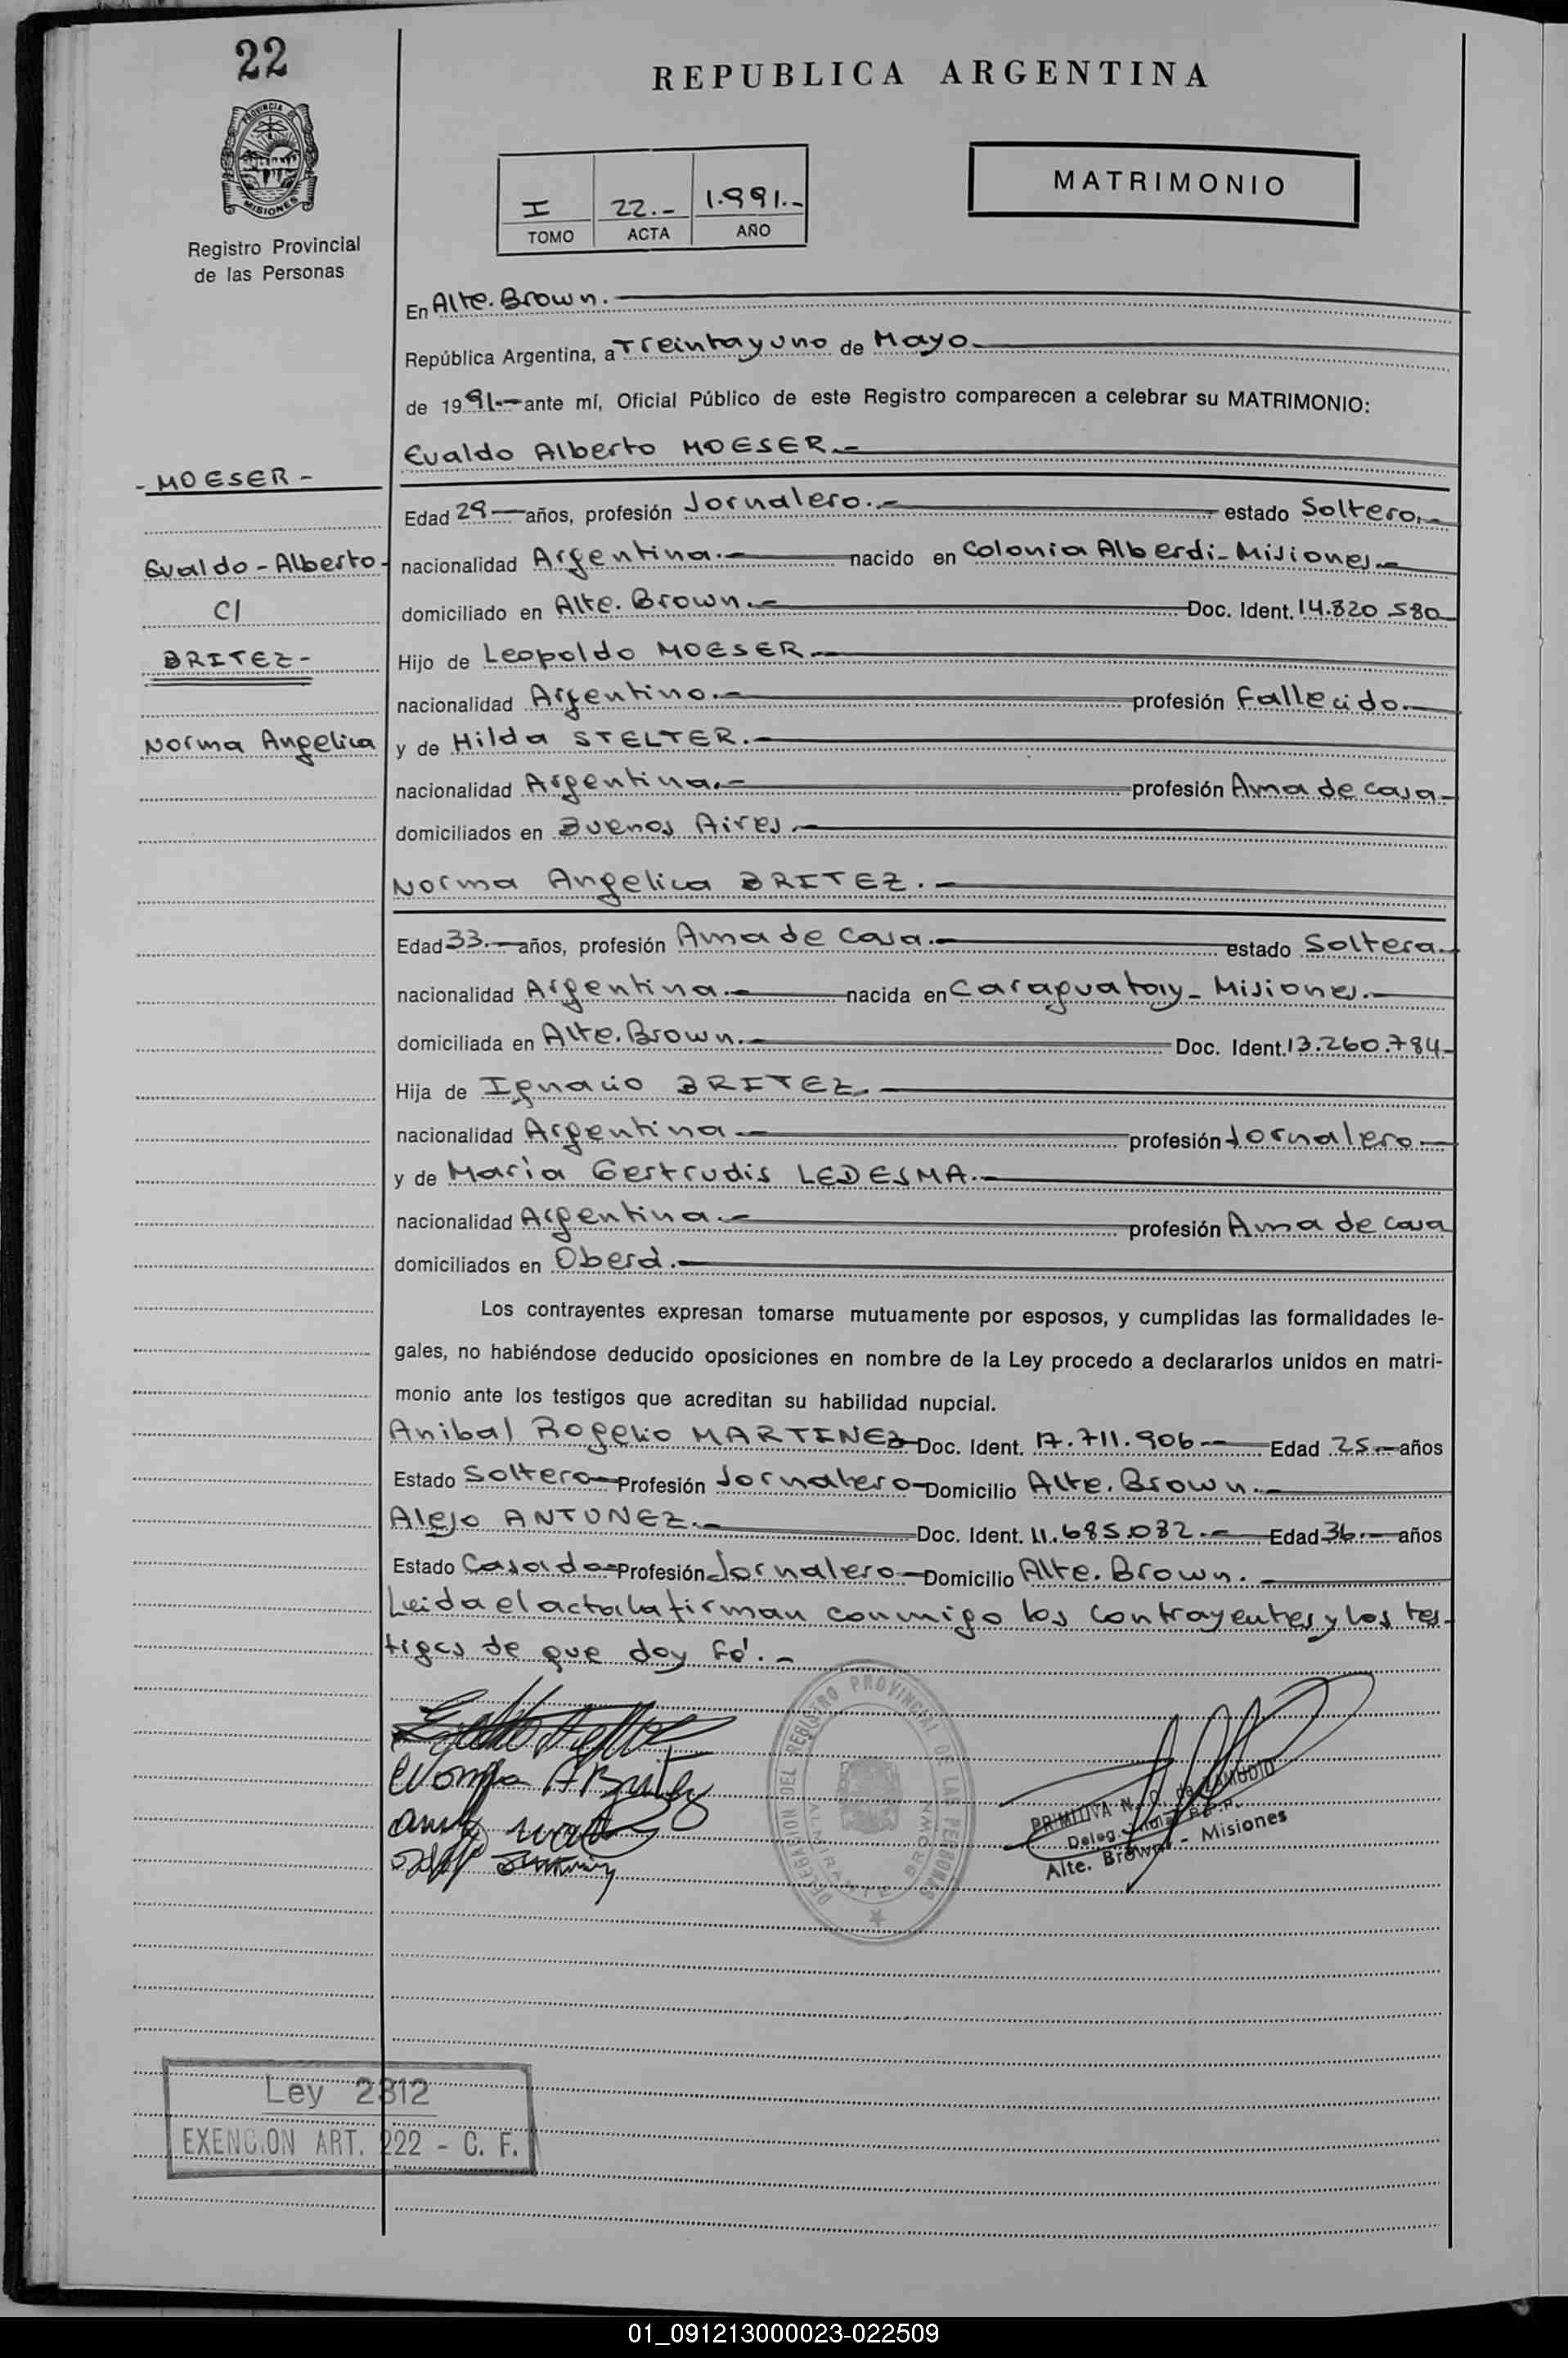 22
REPUBLICA ARGENTINA
PROVINCIA DE
MISIONES
Registro Provincial
de las Personas
I 22.- 1.991.-
TOMO ACTA AÑO
MATRIMONIO
En Alte. Brown.
República Argentina, a Treinta y uno de Mayo
de 1991.- ante mí, Oficial Público de este Registro comparecen a celebrar su MATRIMONIO:
Evaldo Alberto MOESER.-
- MOESER -
Evaldo - Alberto -
C/
BRITEZ -
Norma Angelica
Edad 29 años, profesión Jornalero.- estado Soltero.-
nacionalidad Argentina.- nacido en Colonia Alberdi - Misiones.-
domiciliado en Alte. Brown.- Doc. Ident. 14.820.580
Hijo de Leopoldo MOESER.-
nacionalidad Argentino.- profesión Fallecido.-
y de Hilda STELTER.-
nacionalidad Argentina.- profesión Ama de casa-
domiciliados en Buenos Aires.-
Norma Angelica BRITEZ.-
Edad 33.- años, profesión Ama de Casa.- estado Soltera.-
nacionalidad Argentina.- nacida en Caraguatay - Misiones.-
domiciliada en Alte. Brown.- Doc. Ident. 13.260.784-
Hija de Ignacio BRITEZ.-
nacionalidad Argentina.- profesión Jornalero.-
y de María Gertrudis LEDESMA.-
nacionalidad Argentina.- profesión Ama de casa
domiciliados en Oberá.-
Los contrayentes expresan tomarse mutuamente por esposos, y cumplidas las formalidades le-
gales, no habiéndose deducido oposiciones en nombre de la Ley procedo a declararlos unidos en matri-
monio ante los testigos que acreditan su habilidad nupcial.
Anibal Rogelio MARTINEZ Doc. Ident. 17.711.906.- Edad 25.- años
Estado Soltero- Profesión Jornalero- Domicilio Alte. Brown.-
Alejo ANTUNEZ.- Doc. Ident. 11.685.032.- Edad 36.- años
Estado Casado- Profesión Jornalero- Domicilio Alte. Brown.
Leida el acta la firman conmigo los contrayentes y los tes-
tigos de que doy fé.-
Norma A Britez
DELEGACION DEL REGISTRO PROVINCIAL DE LAS PERSONAS
ALMIRANTE BROWN
PRIMITIVA N. de ZAMUDIO
Deleg. R.P.P.
Alte. Brown - Misiones
Ley 2812
EXENCION ART. 222 - C. F.
01_091213000023-022509